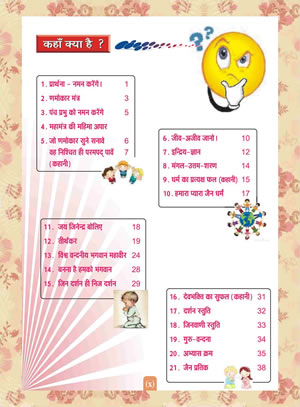 कहाँ क्या है ?
??
1. प्रार्थना - नमन करेंगे। 1
2. णमोकार मंत्र 3
3. पंच प्रभु को नमन करेंगे 5
4. महामंत्र की महिमा अपार 6
5. जो णमोकार सुने सुनावे
वह निश्चित ही परमपद पावे
(कहानी) (7)
6. जीव-अजीव जानो। 10
7. इन्द्रिय-ज्ञान 12
8. मंगल-उत्तम-शरण 14
9. धर्म का प्रत्यक्ष फल (कहानी) 15
10. हमारा प्यारा जैन धर्म 17
11. जय जिनेन्द्र बोलिए 18
12. तीर्थंकर 19
13. विश्व वन्दनीय भगवान महावीर 24
14. बनना है हमको भगवान 28
15. जिन दर्शन ही निज दर्शन 29
16. देवभक्ति का सुफल (कहानी) 31
17. दर्शन स्तुति 32
18. जिनवाणी स्तुति 33
19. गुरु-वन्दना 34
20. अभ्यास क्रम 35
21. जैन प्रतिक 38
(x)